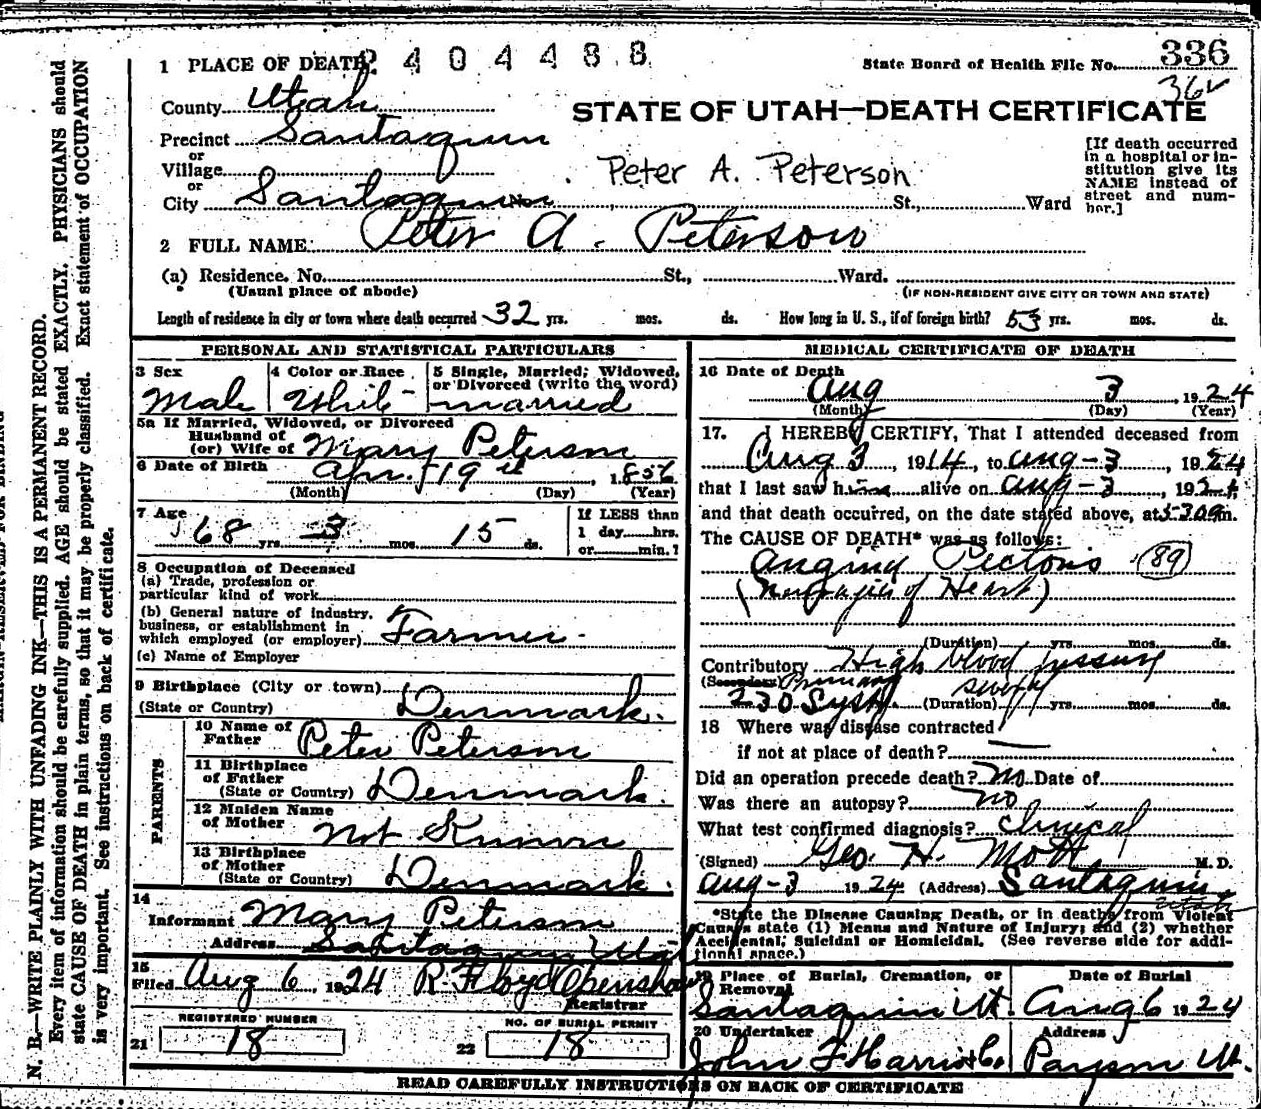 1 PLACE OF DEATH 2 4 0 4 4 8 8
State Board of Health File No. 336
362
County Utah
STATE OF UTAH—DEATH CERTIFICATE
Precinct Santaquin
or
Village
Peter A. Peterson
or
City Santaquin No. St., Ward
[If death occurred
in a hospital or in-
stitution give its
NAME instead of
street and num-
ber.]
2 FULL NAME Peter A. Peterson
(a) Residence. No. St., Ward.
(Usual place of abode)
(IF NON-RESIDENT GIVE CITY OR TOWN AND STATE)
Length of residence in city or town where death occurred 32 yrs. mos. ds. How long in U. S., if of foreign birth? 53 yrs. mos. ds.
PERSONAL AND STATISTICAL PARTICULARS
3 Sex
Male
4 Color or Race
White
5 Single, Married, Widowed,
or Divorced (write the word)
married
5a If Married, Widowed, or Divorced
Husband of
(or) Wife of Mary Peterson
6 Date of Birth Apr. 19th, 1856
(Month) (Day) (Year)
7 Age
68 yrs. 3 mos. 15 ds.
If LESS than
1 day hrs.
or min.?
8 Occupation of Deceased
(a) Trade, profession or
particular kind of work
(b) General nature of industry,
business, or establishment in
which employed (or employer) Farmer
(c) Name of Employer
9 Birthplace (City or town)
(State or Country) Denmark.
PARENTS
10 Name of
Father Peter Peterson
11 Birthplace
of Father
(State or Country) Denmark.
12 Maiden Name
of Mother Not Known
13 Birthplace
of Mother
(State or Country) Denmark.
14
Informant Mary Peterson
Address Santaquin Utah
15
Filed Aug 6, 1924 R. Floyd Openshaw
Registrar
REGISTERED NUMBER
21 18
NO. OF BURIAL PERMIT
22 18
MEDICAL CERTIFICATE OF DEATH
16 Date of Death
Aug 3, 1924
(Month) (Day) (Year)
17. I HEREBY CERTIFY, That I attended deceased from
Aug 3, 1914, to Aug-3, 1924
that I last saw him alive on Aug-3, 192
and that death occurred, on the date stated above, at 530 a m.
The CAUSE OF DEATH* was as follows:
Angina Pectoris (89)
(Neuralgia of Heart)
(Duration) yrs. mos. ds.
Contributory High blood pressure
(Secondary) Primary
230 Syst. (Duration) yrs. mos. ds.
18 Where was disease contracted
if not at place of death? —
Did an operation precede death? No Date of
Was there an autopsy? No
What test confirmed diagnosis? Clinical
(Signed) Geo. H. Mott, M. D.
Aug-3 1924 (Address) Santaquin
Utah
*State the Disease Causing Death, or in deaths from Violent
Causes state (1) Means and Nature of Injury; and (2) whether
Accidental, Suicidal or Homicidal. (See reverse side for addi-
tional space.)
19 Place of Burial, Cremation, or
Removal
Santaquin Ut.
Date of Burial
Aug 6 1924
20 Undertaker
John F Harris Co.
Address
Payson Ut.
READ CAREFULLY INSTRUCTIONS ON BACK OF CERTIFICATE
N. B.—WRITE PLAINLY WITH UNFADING INK—THIS IS A PERMANENT RECORD.
Every item of information should be carefully supplied. AGE should be stated EXACTLY. PHYSICIANS should
state CAUSE OF DEATH in plain terms, so that it may be properly classified. Exact statement of OCCUPATION
is very important. See instructions on back of certificate.